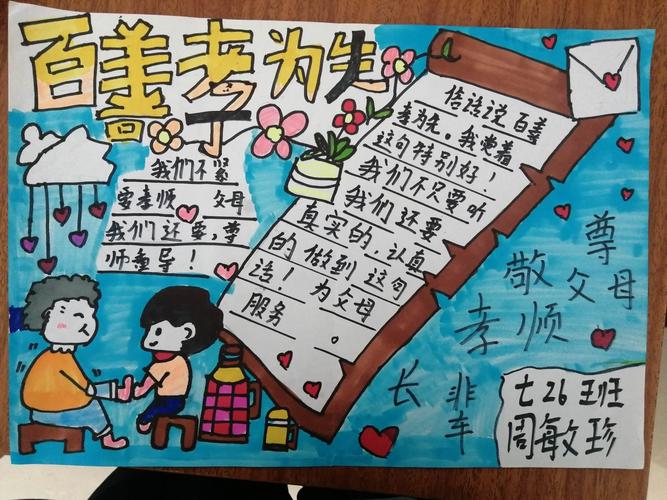 百善孝为先
我们不紧
要孝顺 父母
我们还要,尊
师重导!
俗话说百善
孝为先。我觉着
这句特别好!
我们不只要听
我们还要
真实的,认真
的做到这句
话!为父母
服务。
尊敬
孝顺父母
长辈
七26班
周敏珍